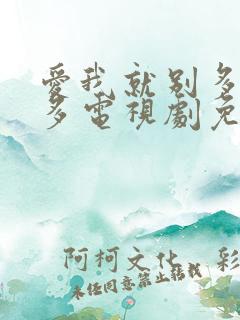 愛我就别多
多電視劇免
阿柯文化 彩
未经同意禁止转载